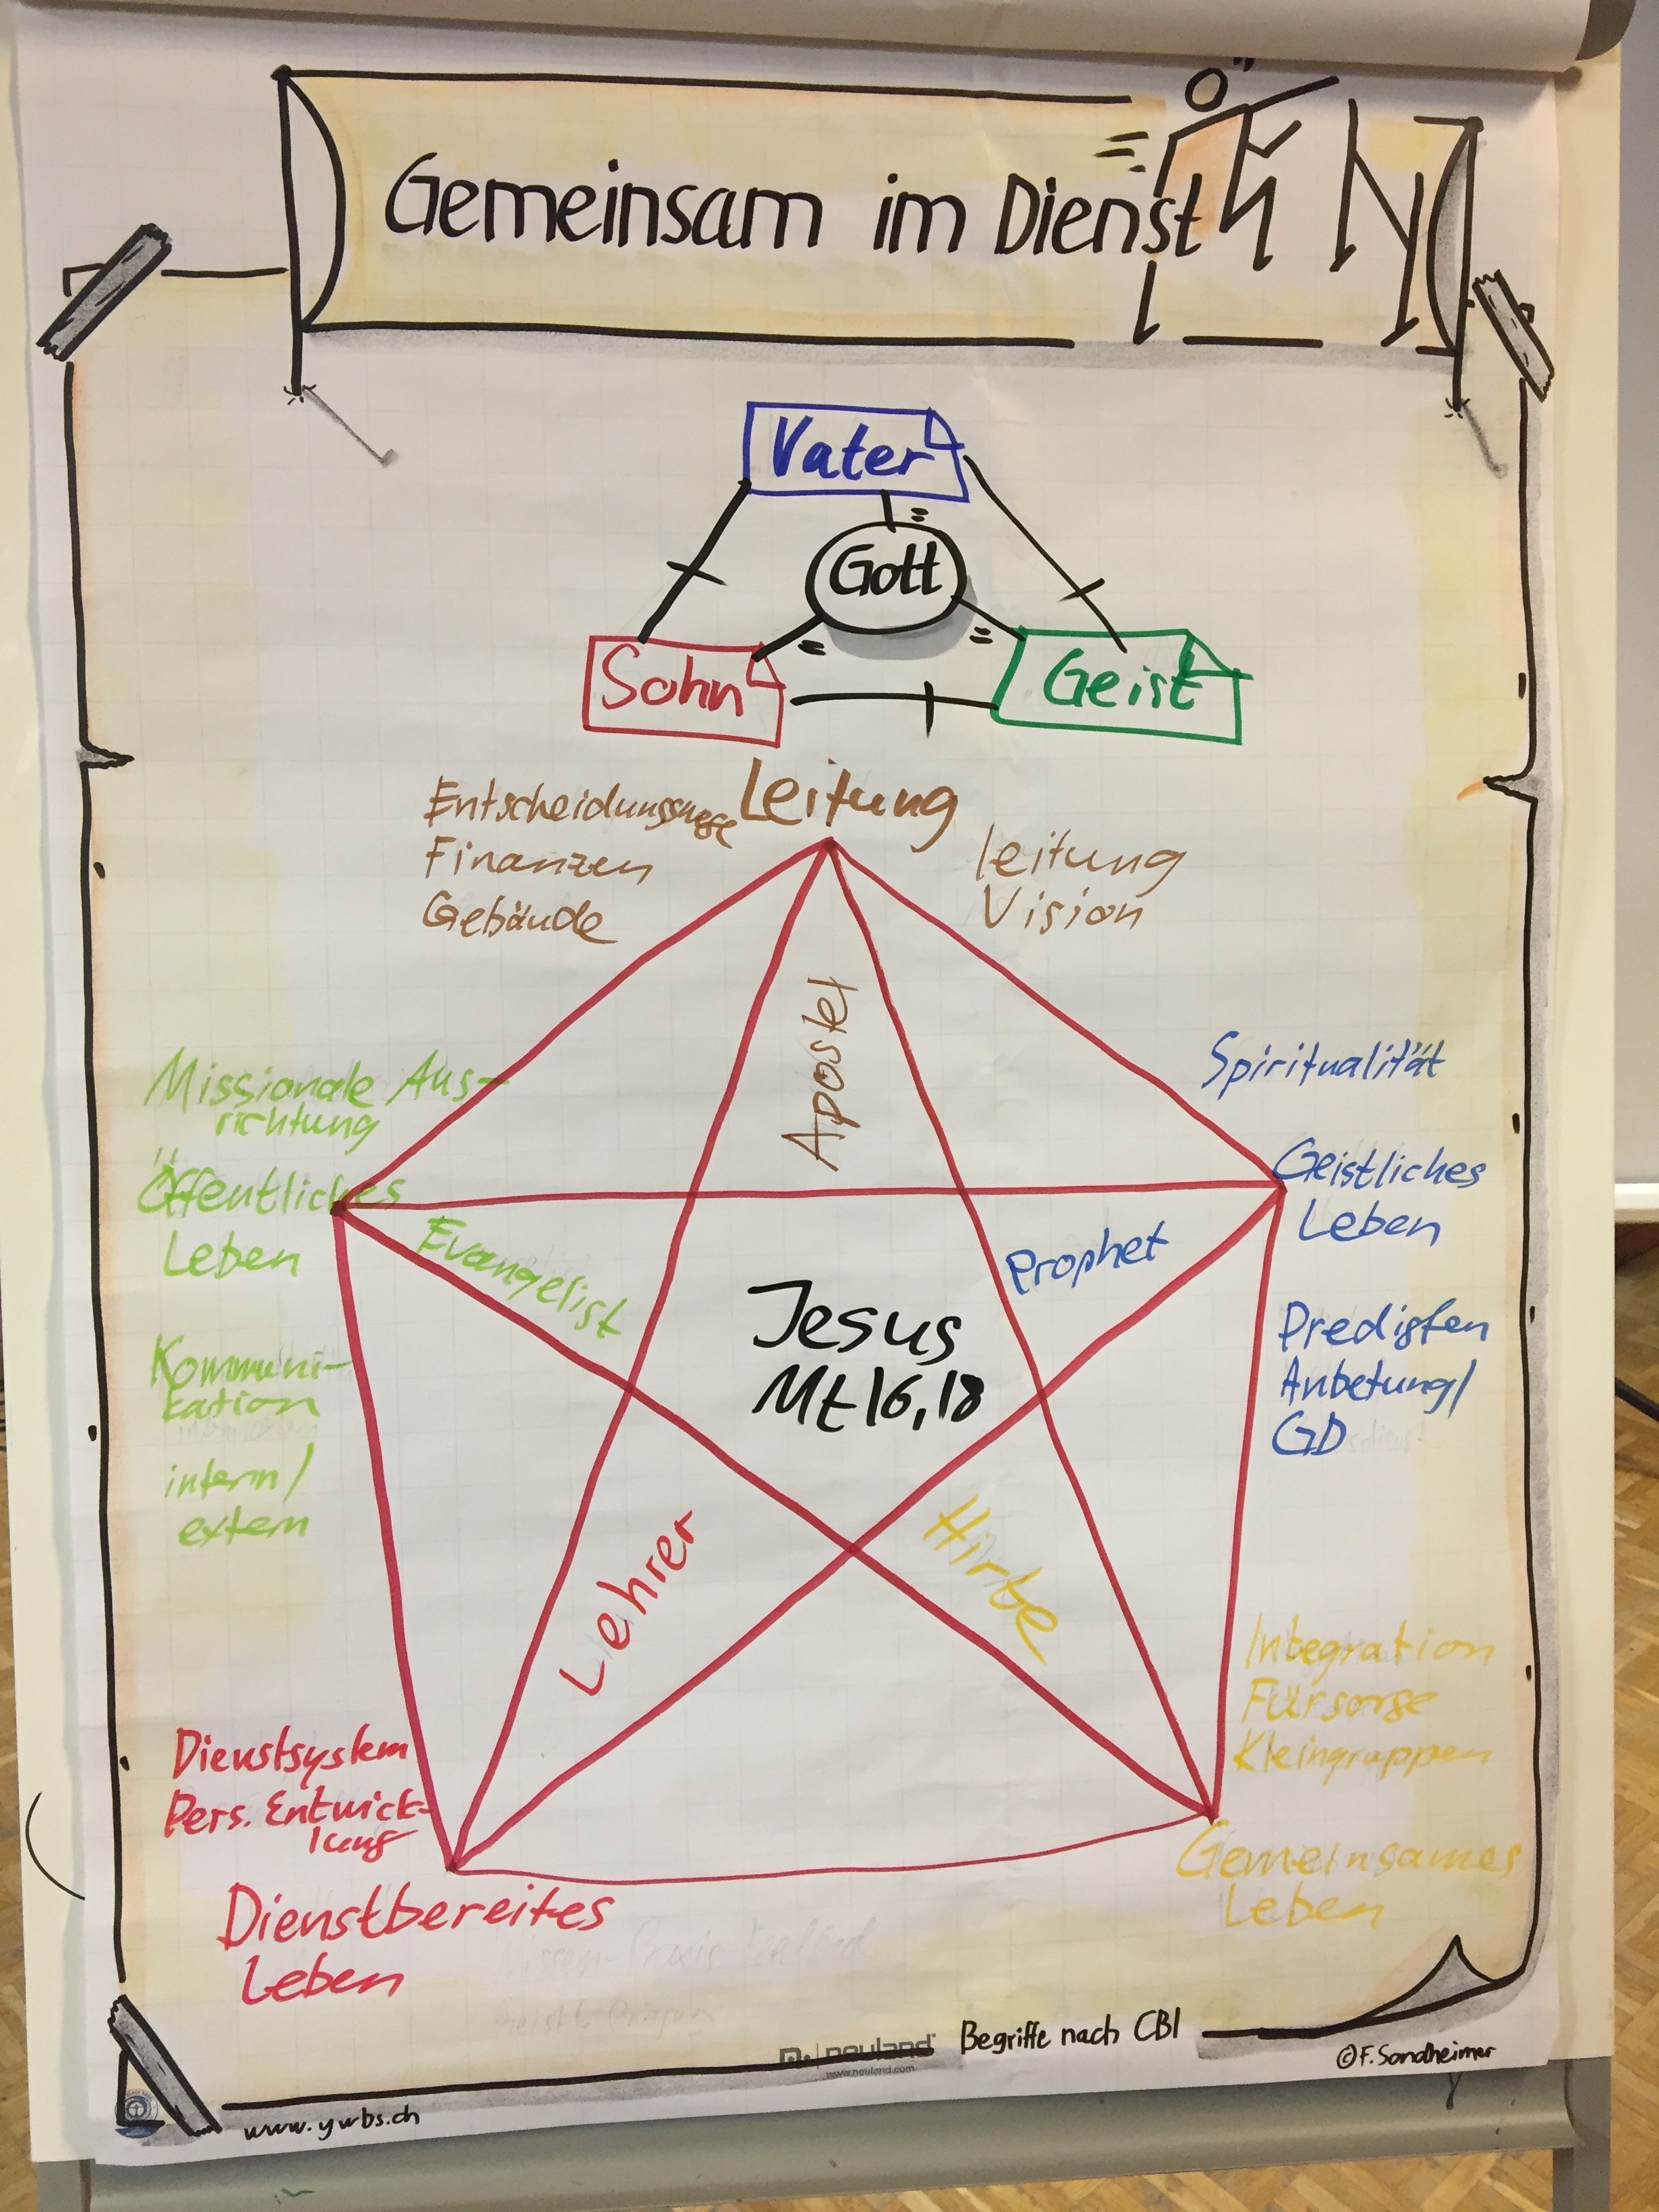 Gemeinsam im Dienst
Vater
Gott
Sohn
Geist
Leitung
Entscheidungswege
Finanzen
Gebäude
leitung
Vision
Apostel
Missionale Aus-
richtung
Öffentliches
Leben
Kommuni-
kation
intern/
extern
Evangelist
Spiritualität
Geistliches
Leben
Predigten
Anbetung/
GD
Prophet
Jesus
Mt 16,18
Lehrer
Hirte
Integration
Fürsorge
Kleingruppen
Gemeinsames
Leben
Dienstsystem
Pers. Entwick-
lung
Dienstbereites
Leben
Begriffe nach CBI
neuland
www.neuland.com
©F.Sondheimer
www.ywbs.ch